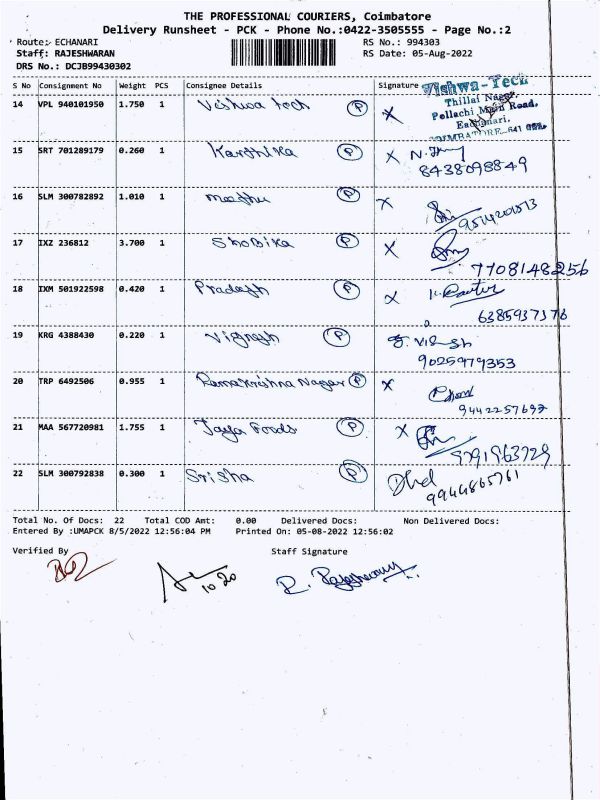 THE PROFESSIONAL COURIERS, Coimbatore
Delivery Runsheet - PCK - Phone No.:0422-3505555 - Page No.:2
Route: ECHANARI RS No.: 994303
Staff: RAJESHWARAN RS Date: 05-Aug-2022
DRS No.: DCJB99430302
S No Consignment No Weight PCS Consignee Details Signature
14 VPL 940101950 1.750 1 Vishwa tech P X
Vishwa-Tech
Thillai Nagar,
Pollachi Main Road,
Eachanari.
COIMBATORE-641
15 SRT 701289179 0.260 1 Karthika P X
8438098849
16 SLM 300782892 1.010 1 P X
9514201513
17 IXZ 236812 3.700 1 Shobika P X
7708148256
18 IXM 501922598 0.420 1 Pradeesh P X
6385937376
19 KRG 4388430 0.220 1 Vignesh P
9025979353
20 TRP 6492506 0.955 1 Ramakrishna Nagar P X
9442257697
21 MAA 567720981 1.755 1 Jaya Foods P X
9791963729
22 SLM 300792838 0.300 1 Srisha P
9944865761
Total No. Of Docs: 22 Total COD Amt: 0.00 Delivered Docs: Non Delivered Docs:
Entered By :UMAPCK 8/5/2022 12:56:04 PM Printed On: 05-08-2022 12:56:02
Verified By Staff Signature
10.20
R. Rajeshwaran